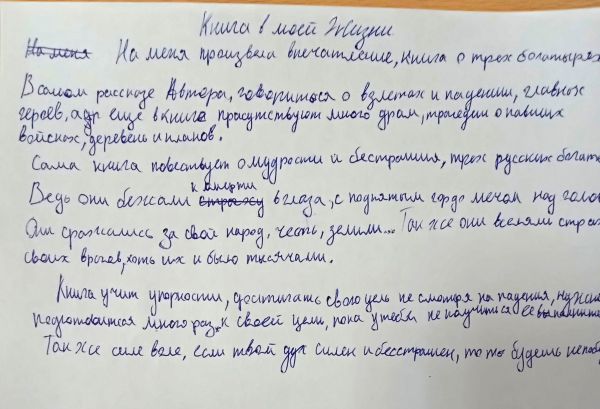 Книга в моей Жизни
На меня На меня произвела впечатление, книга о трех богатырях
В самом рассказе Автора, говориться о взлетах и падении, главных
героев, а еще в книге присутствуют много драм, трагедии о павших
войсках, деревень и планов.
Сама книга повествует о мудрости и бестрашия, трех русских богаты
Ведь они бежали к смерти в глаза, с поднятым гордо мечом над голо
Они сражались за свой народ, честь, земли... Так же они вселяли стра
своих врагов, хоть их и было тысячами.
Книга учит упорности, достигать свою цель не смотря на падения, нужно
подготовится много раз, к своей цели, пока у тебя не научиться ее выполнить
Так же силе воле, если твой дух силен и бесстрашен, то ты будешь непобе